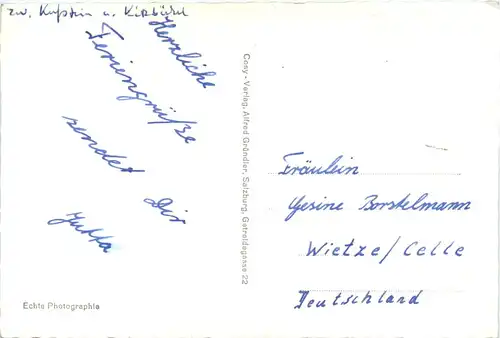 zw. Kufstein u. Kitzbühel
Herzliche
Feriengrüße
sendet Dir
Jutta
Cosy-Verlag, Alfred Gründler, Salzburg, Getreidegasse 22
Fräulein
Gesine Borstelmann
Wietze/Celle
Deutschland
Echte Photographie